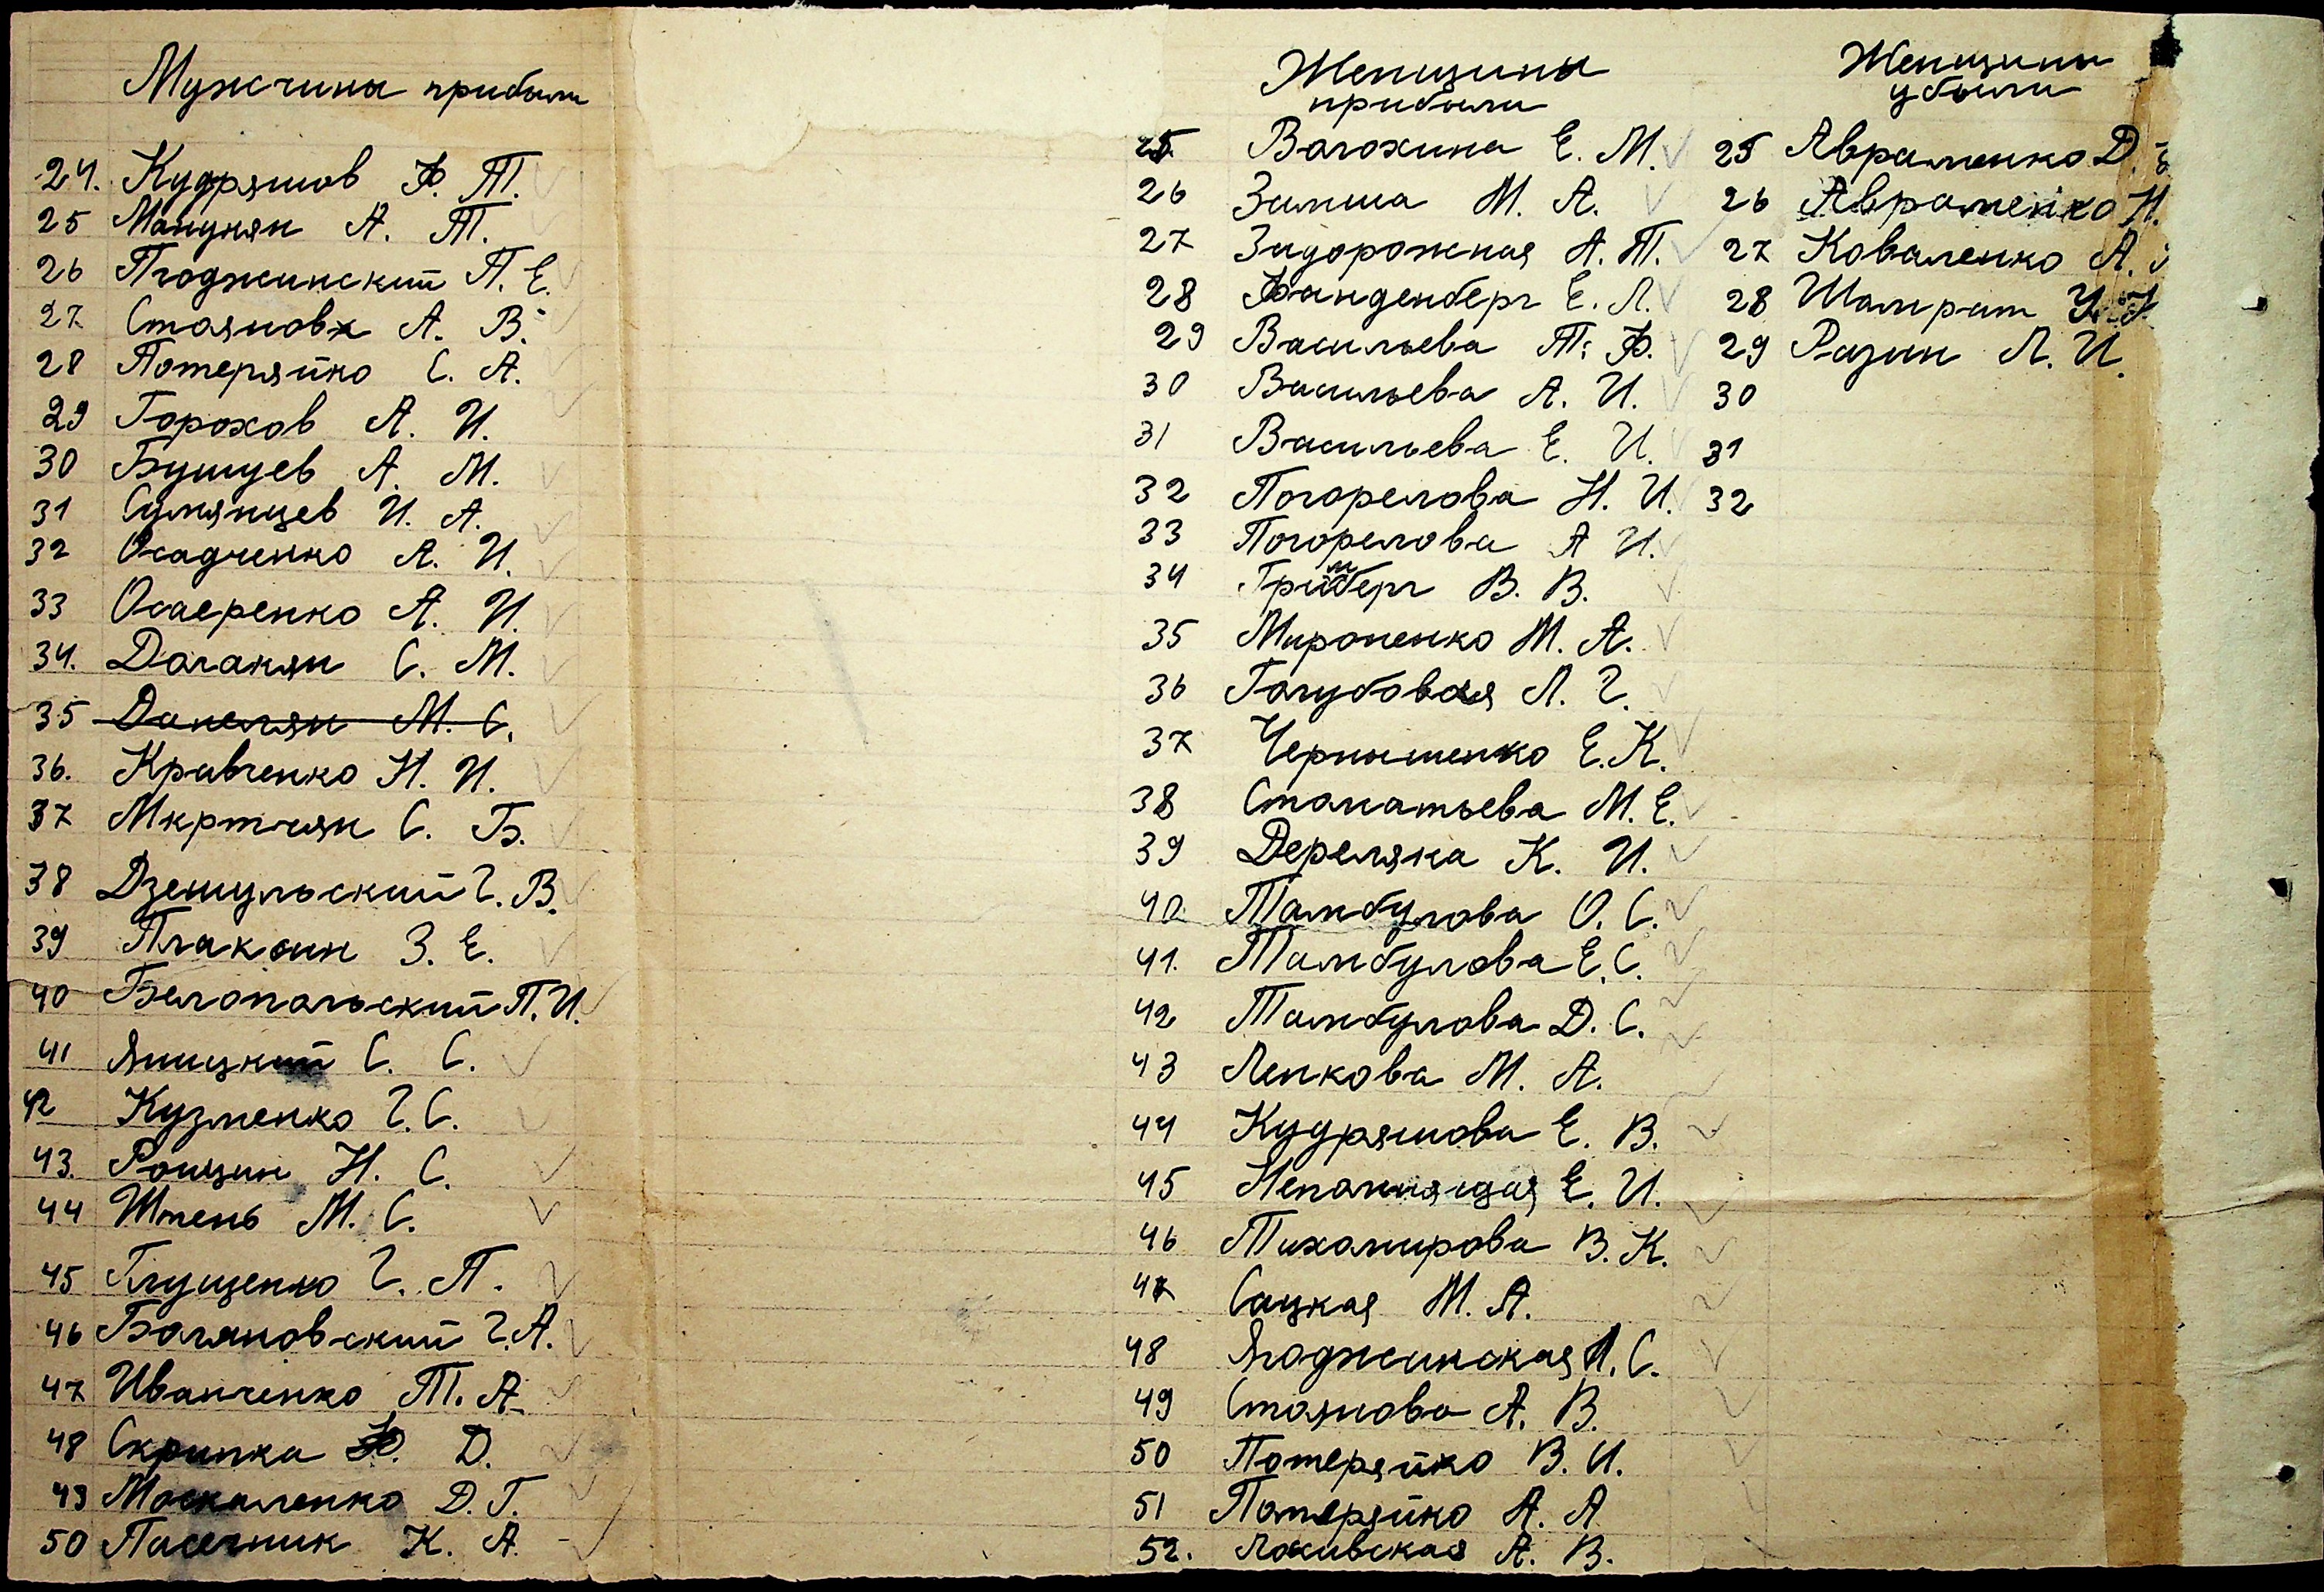 Мужчины прибыли
24. Кудряшов Ф. Т.
25 Манукян А. Т.
26 Ягоджинский П. Е.
27 Стоянов А. В.
28 Потеряйко С. А.
29 Горохов А. И.
30 Бушуев А. М.
31 Сумянцев И. А.
32 Осадченко А. И.
33 Осаеренко А. И.
34. Долакян С. М.
35 Данелян М. С.
36. Кравченко Н. И.
37 Мкртчян С. Б.
38 Дземульский Г. В.
39 Плаксин З. Е.
40 Белопольский П. И.
41 Яницкий С. С.
42 Кузменко Г. С.
43. Рощин Н. С.
44 Штень М. С.
45 Глущенко Г. П.
46 Боляновский Г. А.
47 Иванченко Т. А.
48 Скрипка Ф. D.
49 Москаленко Д. Г.
50 Пасечник К. А.
Женщины
прибыли
25 Волохина Е. М.
26 Зимина М. А.
27 Задорожная А. Т.
28 Фанденберг Е. Л.
29 Васильева Т. Ф.
30 Васильева А. И.
31 Васильева Е. И.
32 Погорелова Н. И.
33 Погорелова А И.
34 Гринберг В. В.
35 Мироненко М. А.
36 Голубовая Л. Г.
37 Чернышенко Е. К.
38 Стаматьева М. Е.
39 Дереляка К. И.
40. Тамбулова О. С.
41. Тамбулова Е. С.
42 Тамбулова Д. С.
43 Ленкова М. А.
44 Кудряшова Е. В.
45 Непомнящая Е. И.
46 Тихомирова В. К.
47 Сацкая М. А.
48 Ягоджинская Л. С.
49 Стоянова А. В.
50 Потеряйко В. И.
51 Потеряйко А. А
52. А. В.
Женщины
убыли
25 Авраменко Д.
26 Авраменко Н.
27 Коваленко А.
28 Шамрат
29 Разин Л. И.
30
31
32